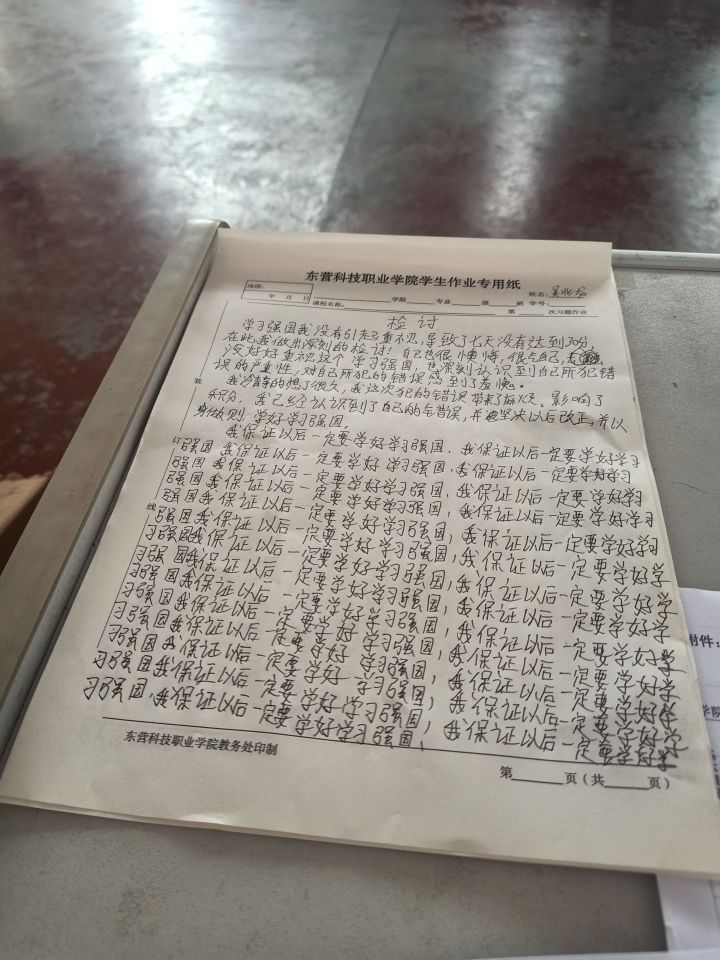 东营科技职业学院学生作业专用纸
成绩:
姓名:
年 月 日 学院 专业 级 班 学号:
课程名称: 第 次习题作业
检讨
学习强国我没有引起重视,导致了七天没有达到30分,
在此我做出深刻的检讨!自己也很懊悔,很气自己,
没好好重视这个学习强国,也深刻认识到自己所犯错
误的严重性,对自己所犯的错误感到了羞愧。
我冷静的想了很久,我这次犯的错误带来了麻烦。影响了
积分。我已经认识到了自己的错误,并 坚决以后改正,并以
身做则 学好学习强国。
我保证以后一定要学好学习强国、我保证以后一定要学好学习
强国 我保证以后一定要学好学习强国、我保证以后一定要学好学习
强国 我保证以后一定要学好学习强国、我保证以后一定要学好学习
强国我保证以后一定要学好学习强国,我保证以后一定要学好学习
强国我保证以后一定要学好学习强国,我保证以后一定要学好学习
强国我保证以后一定要学好学习强国,我保证以后一定要学好学
习强国我保证以后一定要学好学习强国,我保证以后一定要学好学
习强国我保证以后一定要学好学习强国,我保证以后一定要学好学
习强国我保证以后一定要学好学习强国,我保证以后一定要学好学
习强国我保证以后一定要学好学习强国,我保证以后一定要学好学
习强国我保证以后一定要学好学习强国,我保证以后一定要学好学
习强国我保证以后一定要学好学习强国,我保证以后一定要学好学
习强国,我保证以后一定要学好学习强国,我保证以后一定要学好学
装
订
线
东营科技职业学院教务处印制
第 页(共 页)
附件:
学院